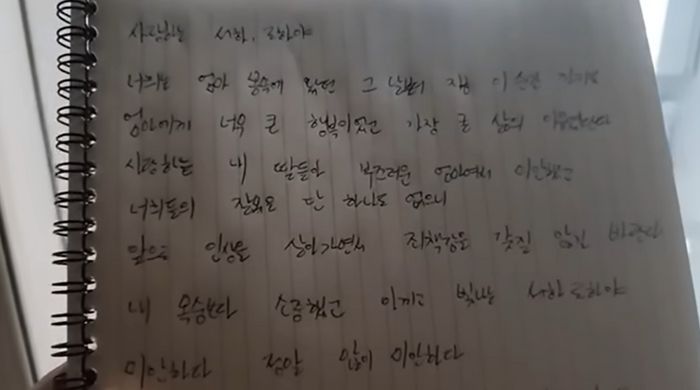 사랑하는 서하, 로하야
너희는 엄마 뱃속에 왔던 그 날부터 지금 이 순간 까지도
엄마에게 너무 큰 행복이었고 가장 큰 삶의 이유란다
사랑하는 내 딸들아 부끄러운 엄마여서 미안했고
너희들의 잘못은 단 하나도 없으니
앞으로 인생을 살아가면서 죄책감을 갖질 않길 바란다
내 목숨보다 소중했고 아끼고 빛나는 서하 로하야
미안하다 정말 많이 미안하다